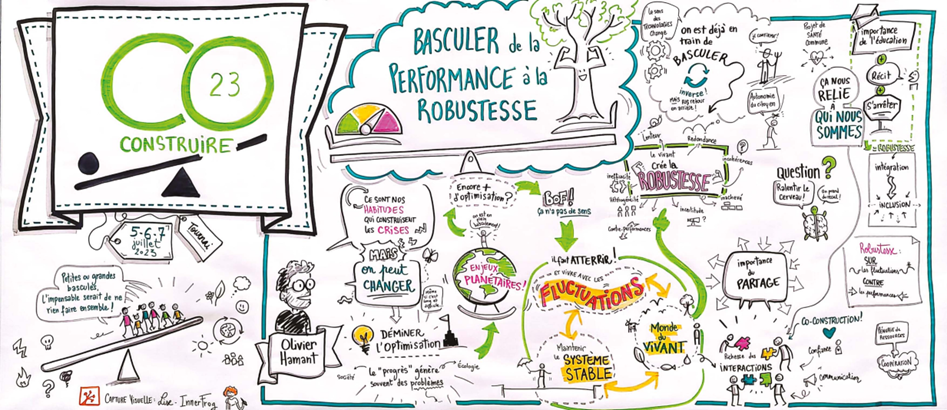 CO
23
CONSTRUIRE
5.6.7
juillet
2023
Tournai
Petites ou grandes
bascules,
L'impensable serait de ne
rien faire ensemble!
CAPTURE VISUELLE: Lise. InnerFrog
BASCULER de la
PERFORMANCE à la
ROBUSTESSE
CE SONT NOS
HABITUDES
QUI CONSTRUISENT
LES CRISES
MAIS
on peut
CHANGER
Olivier
Hamant
DÉMINER
L'OPTIMISATION
Société
Le "progrès" génère
souvent des problèmes
Écologie
Encore +
d'optimisation?
BOF!
Ça n'a pas de sens
ENJEUX
PLANÉTAIRES!
il faut ATTERRIR!
ET VIVRE AVEC LES
FLUCTUATIONS
Maintenir
le SYSTÈME
STABLE
Monde
du VIVANT
Le sens
des
TECHNOLOGIES
Change
on est déjà en
train de
BASCULER
inverse!
mais pas retour
en arrière!
Autonomie
du citoyen
Projet de
SANTÉ
commune
ÇA NOUS
RELIE
À QUI NOUS
SOMMES
importance
de l'éducation
Récit
S'arrêter
= ROBUSTESSE
lenteur
Redondance
le vivant
Crée la
ROBUSTESSE
incohérences
inefficacité
Hétérogénéité
incertitude
Contre-performances
Question?
Ralentir le
Cerveau!
intégration
INCLUSION
Robustesse:
SUR
les fluctuations
CONTRE
les performances
importance
du
PARTAGE
CO-CONSTRUCTION!
Confiance
communication
Richesse des
INTERACTIONS
COOPÉRATION